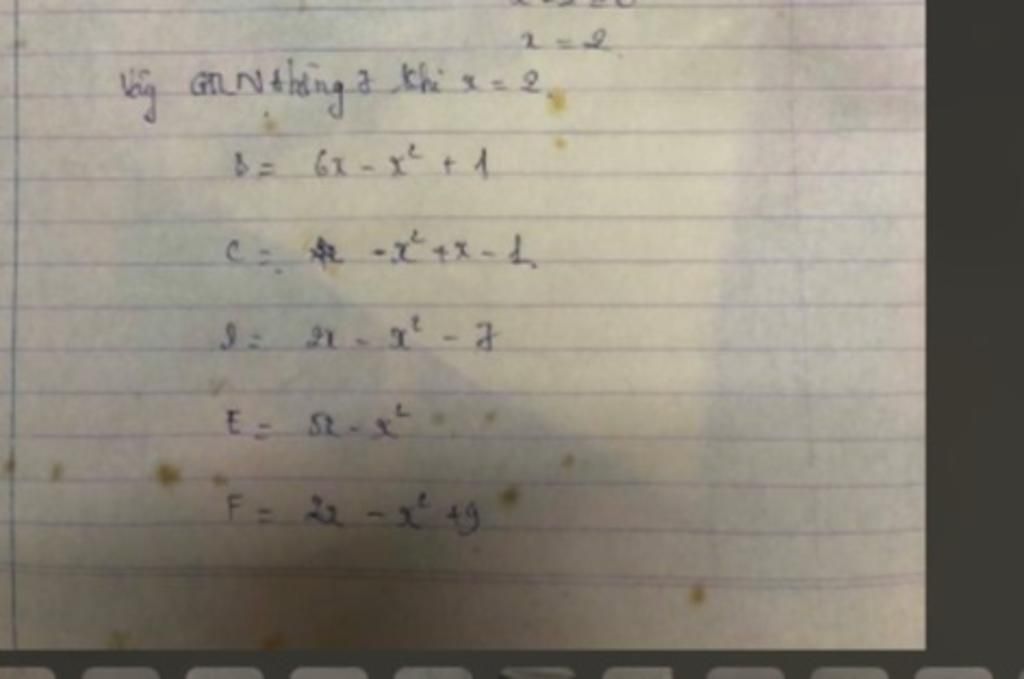 x = 2
Vậy GTLN bằng 7 khi x = 2.
B = 6x - x² + 1
C = - x² + x - 1
D = 2x - x² - 7
E = 5x - x²
F = 2x - x² + 9